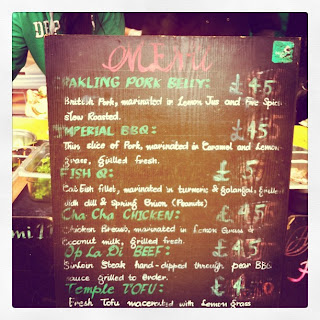 MENU
AKLING PORK BELLY: £ 4.5
British Pork, marinated in Lemon Jus and Five Spice
Slow Roasted.
MPERIAL BBQ: £ 4.5
Thin slice of Pork, marinated in Caramel and Lemon
Grass, Grilled fresh.
FISH Q: £ 5
Catfish fillet, marinated in turmeric & galangal, grilled
with dill & Spring Onion (Peanuts)
Cha Cha CHICKEN: £ 4.5
Chicken Breast, marinated in Lemon Grass &
Coconut milk, Grilled fresh.
Op La Di BEEF: £ 4.5
Sirloin Steak hand-dipped through pear BBQ
sauce grilled to Order.
Temple TOFU: £ 4
Fresh Tofu macerated with Lemon grass